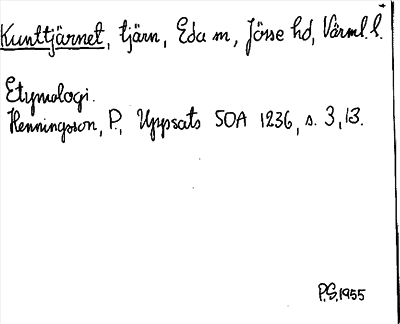 Kunttjärnet, tjärn, Eda m, Jösse hd, Värml. l.
Etymologi.
Henningsson, P., Uppsats SOA 1236, s. 3, 13.
P.G. 1955